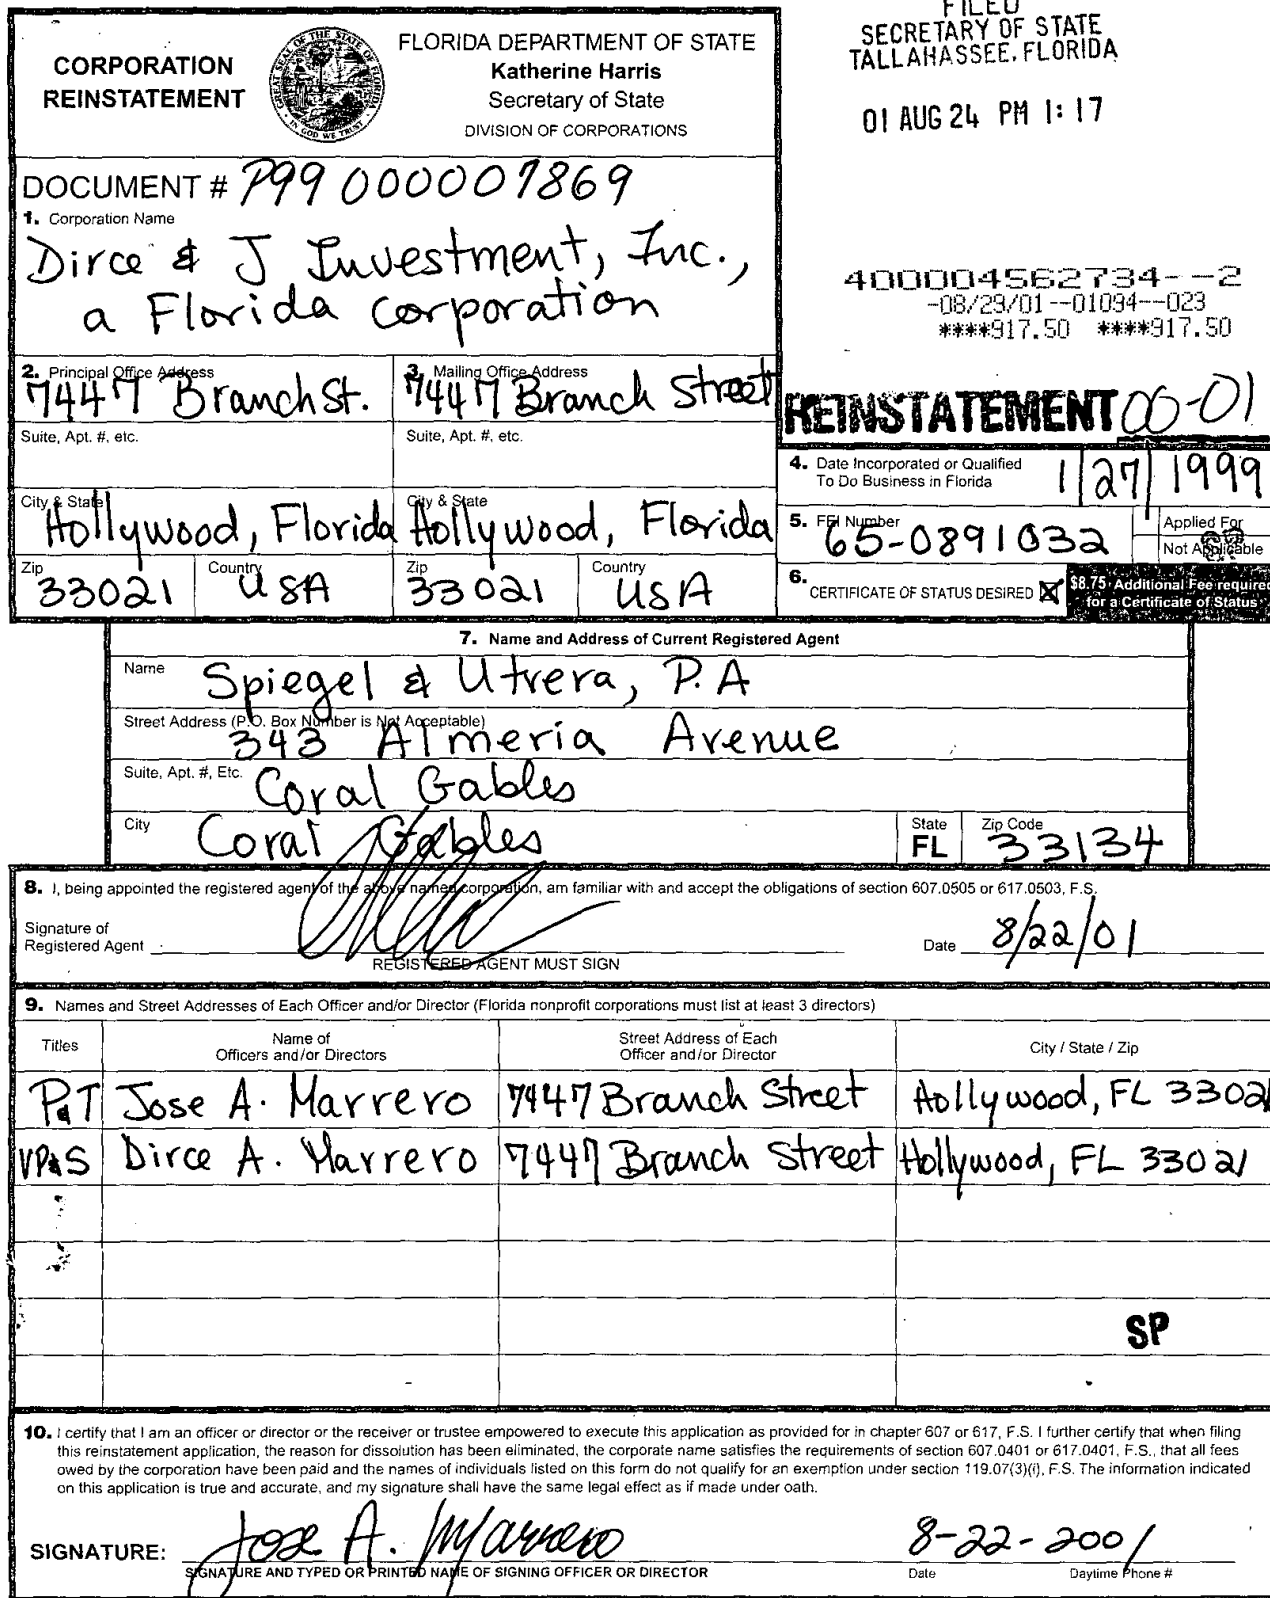 FILED
SECRETARY OF STATE
TALLAHASSEE, FLORIDA
01 AUG 24 PM 1:17
CORPORATION
REINSTATEMENT
GREAT SEAL OF THE STATE OF FLORIDA
IN GOD WE TRUST
FLORIDA DEPARTMENT OF STATE
Katherine Harris
Secretary of State
DIVISION OF CORPORATIONS
DOCUMENT # P99000007869
1. Corporation Name
Dirce & J Investment, Inc.,
a Florida corporation
400004562734--2
-08/29/01--01094--023
****917.50 ****917.50
2. Principal Office Address
7447 Branch St.
3. Mailing Office Address
7447 Branch Street
REINSTATEMENT 00-01
Suite, Apt. #, etc.
Suite, Apt. #, etc.
4. Date Incorporated or Qualified
To Do Business in Florida
1/27/1999
City & State
Hollywood, Florida
City & State
Hollywood, Florida
5. FEI Number
65-0891032
Applied For
Not Applicable
Zip
33021
Country
USA
Zip
33021
Country
USA
6. CERTIFICATE OF STATUS DESIRED
$8.75 Additional Fee required
for a Certificate of Status
7. Name and Address of Current Registered Agent
Name
Spiegel & Utrera, P.A
Street Address (P.O. Box Number is Not Acceptable)
343 Almeria Avenue
Suite, Apt. #, Etc.
Coral Gables
City
Coral Gables
State
FL
Zip Code
33134
8. I, being appointed the registered agent of the above named corporation, am familiar with and accept the obligations of section 607.0505 or 617.0503, F.S.
Signature of
Registered Agent
REGISTERED AGENT MUST SIGN
Date 8/22/01
9. Names and Street Addresses of Each Officer and/or Director (Florida nonprofit corporations must list at least 3 directors)
Titles
Name of
Officers and/or Directors
Street Address of Each
Officer and/or Director
City / State / Zip
P&T Jose A. Marrero 7447 Branch Street Hollywood, FL 33021
VP&S Dirce A. Marrero 7447 Branch Street Hollywood, FL 33021
SP
10. I certify that I am an officer or director or the receiver or trustee empowered to execute this application as provided for in chapter 607 or 617, F.S. I further certify that when filing
this reinstatement application, the reason for dissolution has been eliminated, the corporate name satisfies the requirements of section 607.0401 or 617.0401, F.S., that all fees
owed by the corporation have been paid and the names of individuals listed on this form do not qualify for an exemption under section 119.07(3)(i), F.S. The information indicated
on this application is true and accurate, and my signature shall have the same legal effect as if made under oath.
SIGNATURE: Jose A. Marrero 8-22-2001
SIGNATURE AND TYPED OR PRINTED NAME OF SIGNING OFFICER OR DIRECTOR
Date
Daytime Phone #